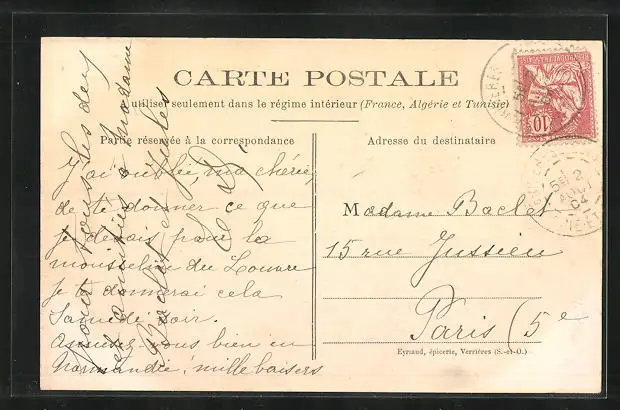 CARTE POSTALE
à utiliser seulement dans le régime intérieur (France, Algérie et Tunisie)
Partie réservée à la correspondance
Adresse du destinataire
J'ai oublié, ma chérie,
de te donner ce que
je devais pour la
mousseline du Louvre
Je te donnerai cela
Samedi soir.
Amusez-vous bien en
Normandie, mille baisers
pour tous les deux
et amitiés à Madame
Baclet et Jules
Madame Baclet
15 rue Jussieu
Paris (5e
Eyriaud, épicerie, Verrières (S.-et-O.)
10
2
AOUT
04